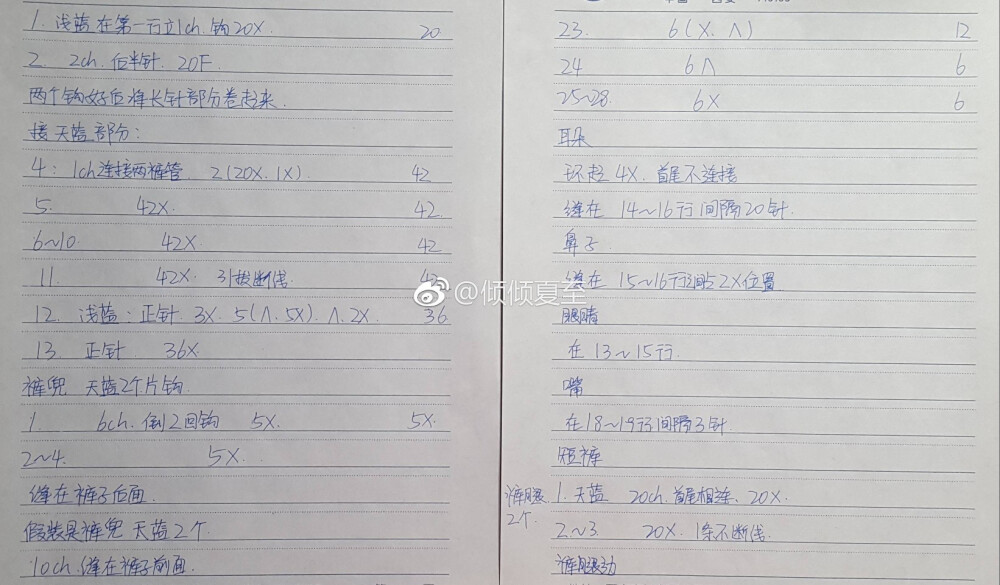 1. 浅蓝在第一行立1ch. 钩20X. 20
2. 2ch. 后半针. 20F.
两个钩好后将长针部分卷起来.
接天蓝部分:
4: 1ch连接两裤管 2(20X. 1X). 42
5. 42X. 42
6~10. 42X. 42
11. 42X. 引拔断线. 42
12. 浅蓝: 正针 3X. 5(Λ. 5X). Λ. 2X. 36
13. 正针. 36X
裤兜 天蓝2个片钩.
1 6ch. 倒2回钩 5X. 5X.
2~4. 5X.
缝在裤子后面.
假装是裤兜 天蓝2个.
10ch. 缝在裤子前面.
23. 6(X. Λ) 12
24 6Λ 6
25~28. 6X 6
耳朵
环起4X. 首尾不连接
缝在14~16行间隔20针.
鼻子.
缝在15~16行之间占2X位置
眼睛
在13~15行.
嘴
在18~19行间隔3针.
短裤
裤腿2个. 1. 天蓝 20ch. 首尾相连. 20X.
2~3. 20X. 1条不断线.
裤腿边
@倾倾夏至